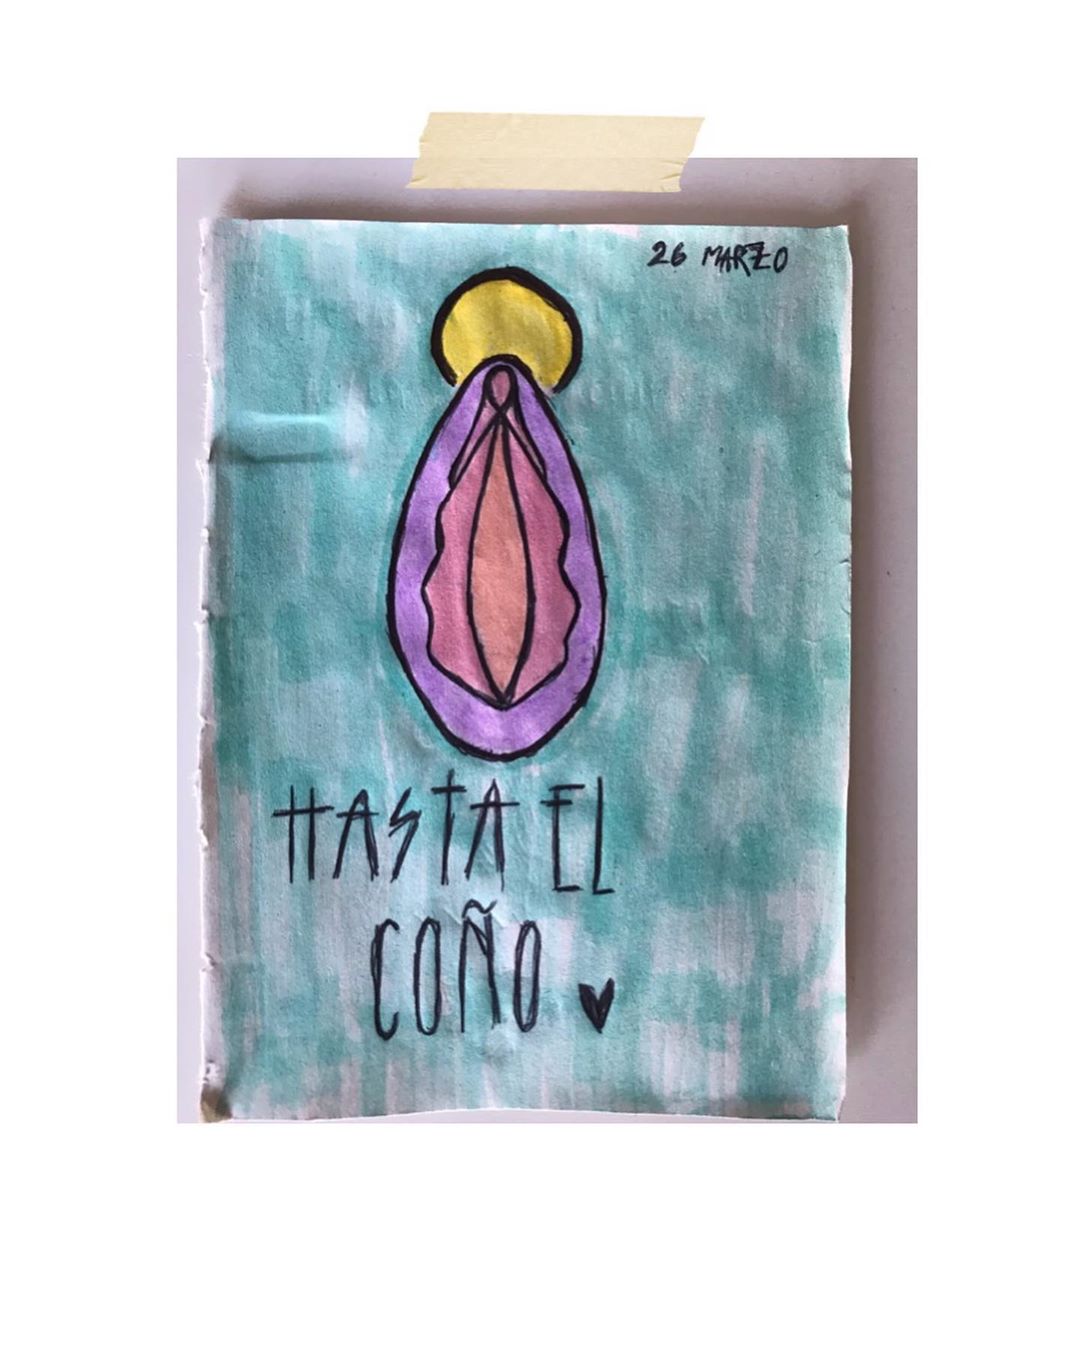 26 MARZO
HASTA EL
COÑO